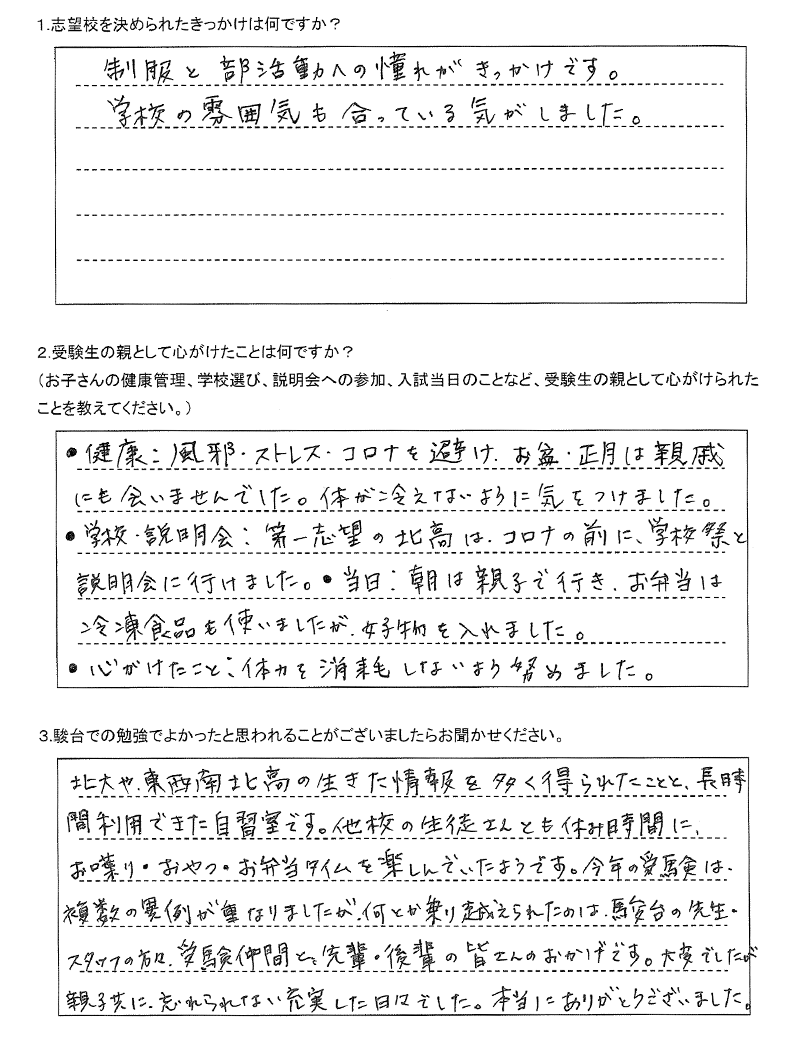 1.志望校を決められたきっかけは何ですか？
制服と部活動への憧れがきっかけです。
学校の雰囲気も合っている気がしました。
2.受験生の親として心がけたことは何ですか？
（お子さんの健康管理、学校選び、説明会への参加、入試当日のことなど、受験生の親として心がけられた
ことを教えてください。）
●健康：風邪・ストレス・コロナを避け、お盆・正月は親戚
にも会いませんでした。体が冷えないように気をつけました。
●学校・説明会：第一志望の北高は、コロナの前に、学校祭と
説明会に行けました。●当日：朝は親子で行き、お弁当は
冷凍食品も使いましたが、好物を入れました。
●心がけたこと：体力を消耗しないよう努めました。
3.駿台での勉強でよかったと思われることがございましたらお聞かせください。
北大や、東西南北高の生きた情報を多く得られたことと、長時
間利用できた自習室です。他校の生徒さんとも休み時間に、
お喋り・おやつ・お弁当タイムを楽しんでいたようです。今年の受験は、
複数の異例が重なりましたが、何とか乗り越えられたのは、駿台の先生・
スタッフの方々、受験仲間と、先輩・後輩の皆さんのおかげです。大変でしたが
親子共に、忘れられない充実した日々でした。本当にありがとうございました。